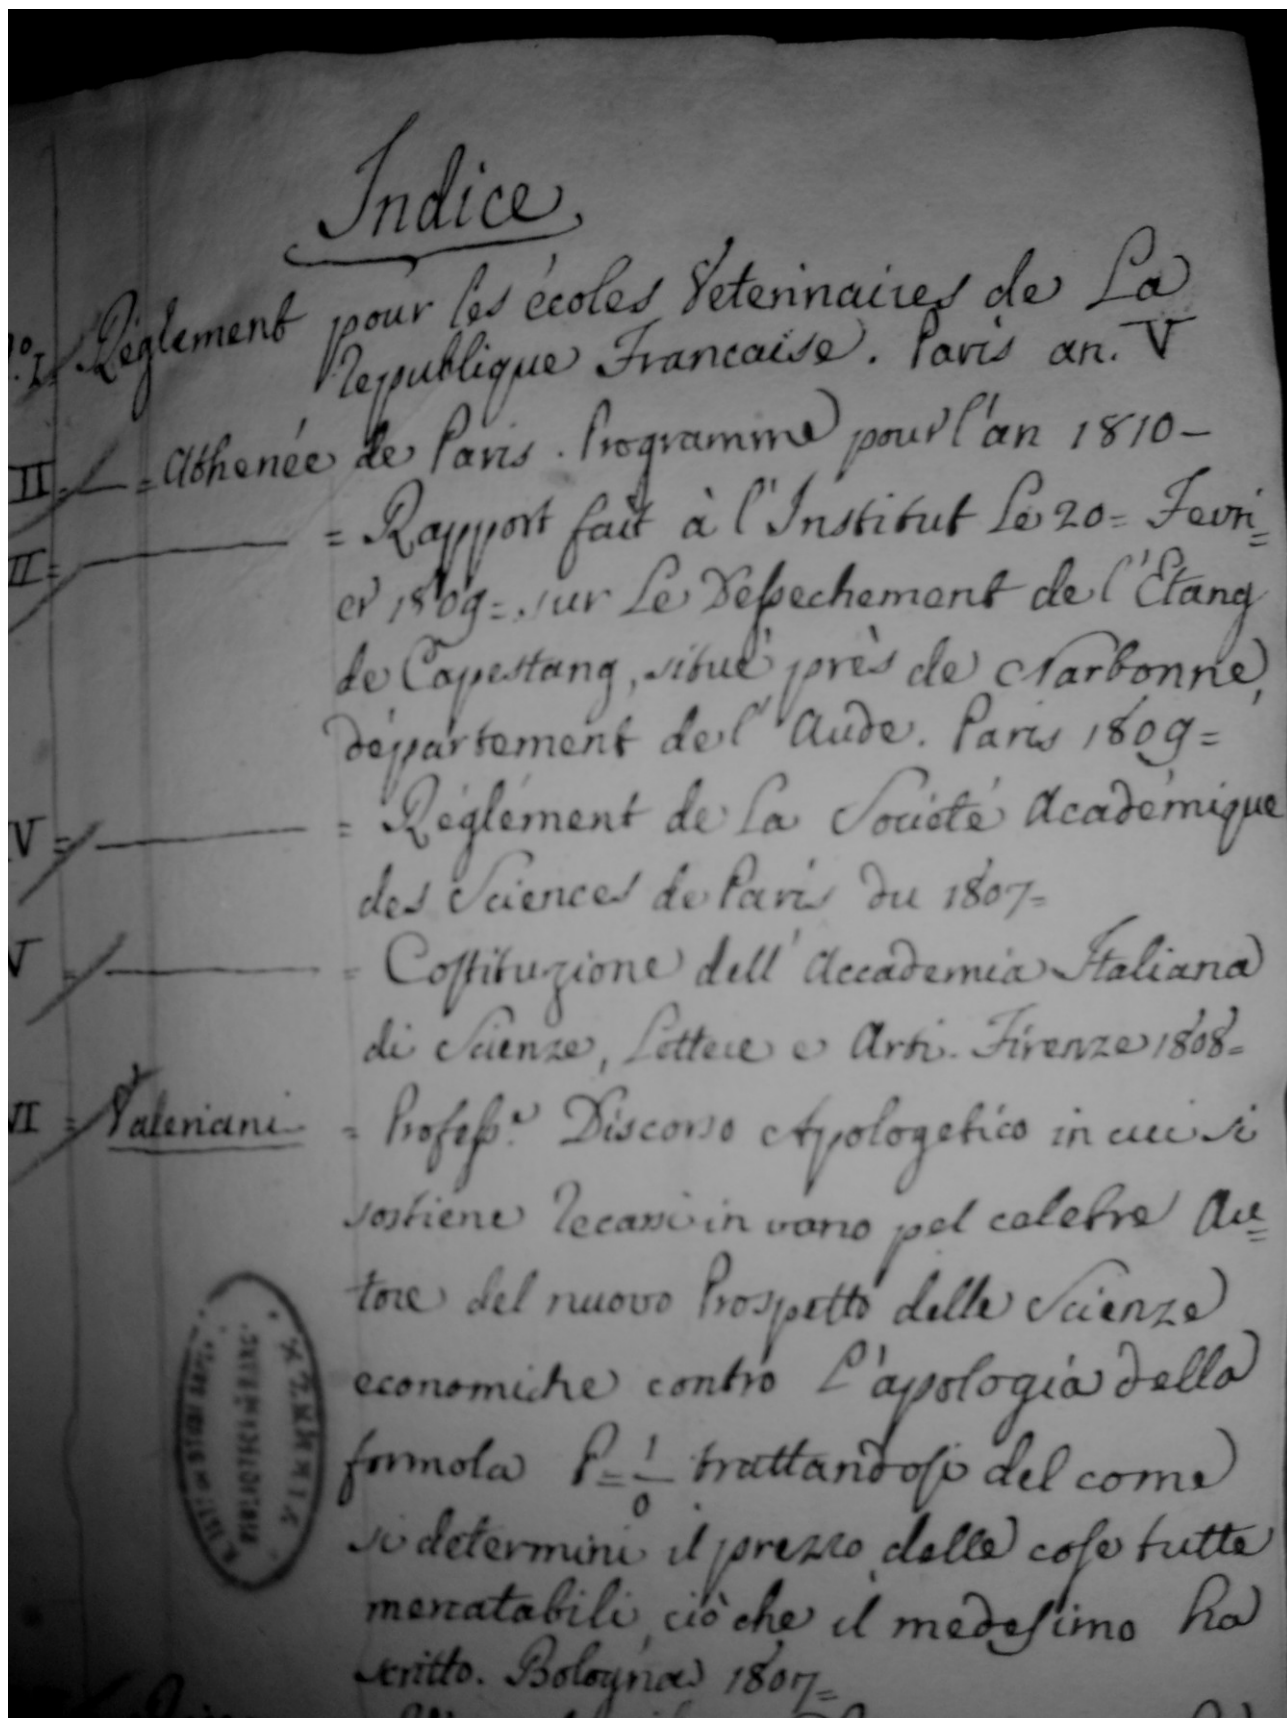 Indice
N.º I. Réglement pour les écoles Veterinnaires de La
Republique Francaise. Paris an. V
II = Athenée de Paris. Programme pour l'an 1810 -
III = = Rapport fait à l'Institut Le 20 = Fevri=
er 1809 = sur Le Dessechement de l'Etang
de Capestang, situé près de Narbonne,
département de l'Aude. Paris 1809 =
IV = = Réglément de La Societé Académique
des Sciences de Paris du 1807 =
V = Costituzione dell'Accademia Italiana
di Scienze, Lettere e Arti. Firenze 1808 =
VI = Valeriani = Profess.e Discorso Apologetico in cui si
sostiene recarsi in vano pel celebre Au=
tore del nuovo Prospetto delle Scienze
economiche contro L'apologia della
formola P = 1/0 trattandosi del come
si determini il prezzo delle cose tutte
mercatabili, ciò che il medesimo ha
scritto. Bologna 1807 =